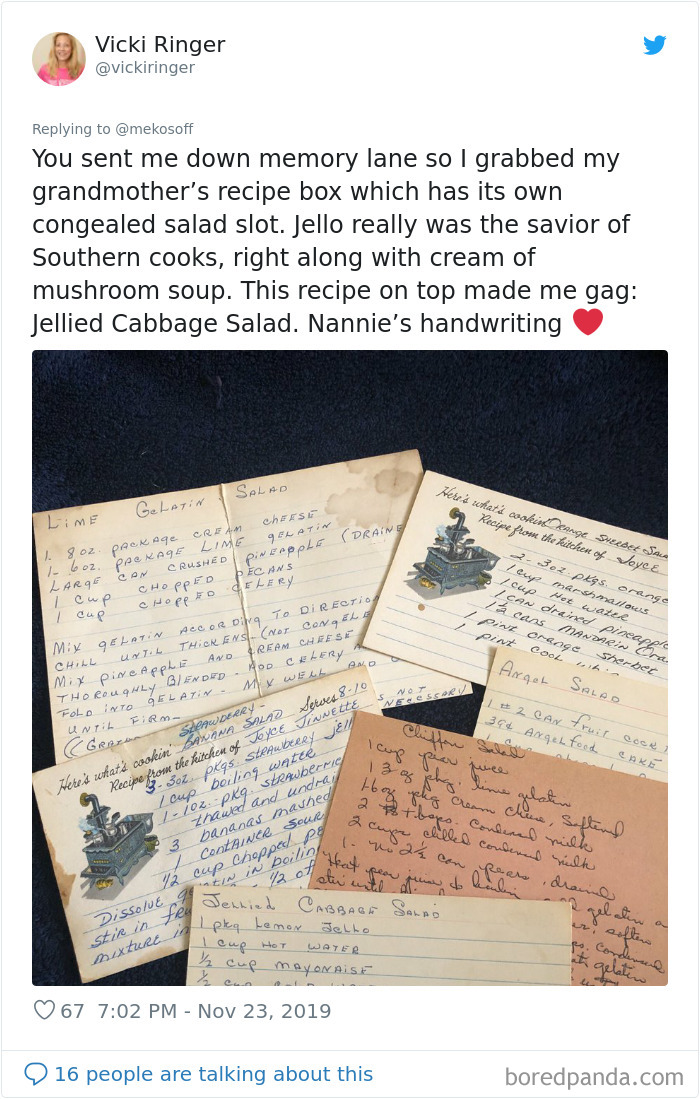 Vicki Ringer
@vickiringer
Replying to @mekosoff
You sent me down memory lane so I grabbed my
grandmother's recipe box which has its own
congealed salad slot. Jello really was the savior of
Southern cooks, right along with cream of
mushroom soup. This recipe on top made me gag:
Jellied Cabbage Salad. Nannie's handwriting ❤️
LIME GELATIN SALAD
1. 8 oz. PACKAGE CREAM CHEESE
1- 6oz. PACKAGE LIME GELATIN
LARGE CAN CRUSHED PINEAPPLE (DRAINE
1 CUP CHOPPED PECANS
1 CUP CHOPPED CELERY
MIX GELATIN ACCORDING TO DIRECTIO
CHILL UNTIL THICKENS- (NOT CONGELE
MIX PINEAPPLE AND CREAM CHEESE
THOROUGHLY BLENDED- ADD CELERY A
FOLD INTO GELATIN- MIX WELL AND
UNTIL FIRM-
NOT
NECESSARY)
Here's what's cookin' Orange Sherbet Sala
Recipe from the kitchen of JOYCE
2- 3oz. pkgs. orange
1 cup marshmallows
1 cup Hot water
1 CAN drained pineapple
1½ cans MANDARIN Oran
1 pint orange Sherbet
1 pint Cool
ANGEL SALAD
1 # 2 CAN FRUIT COCK
39¢ ANGELFOOD CAKE
Here's what's cookin' STRAWBERRY- BANANA SALAD Serves 8-10
Recipe from the kitchen of JOYCE JINNETTE
3- 3oz. pkgs. STRAWBERRY jell
1 cup boiling water
1-10z. pkg. STRAWBERRIE
thawed and undrai
3 bananas mashed
1 CONTAINER SOUR
½ cup Chopped pe
DISSOLVE gelatin in boilin
STIR in fru ½ of
mixture in
Chiffon Salad
1 cup pear juice
1 3 oz pkg. lime gelatin
1-6 oz pkg cream chese, softened
2 tbsps. condensed milk
2 cups chilled condensed milk
1- no 2½ can pears, drained
Heat pear juice to boilin
stir until
Jellied CABBAGE SALAD
1 pkg Lemon Jello
1 cup HOT WATER
½ cup MAYONAISE
½ cup
67 7:02 PM - Nov 23, 2019
16 people are talking about this
boredpanda.com